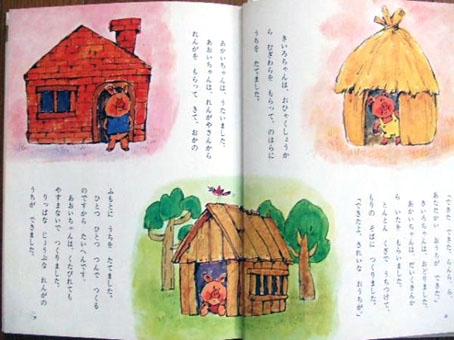 きいろちゃんは、おひゃくしょうか
ら むぎわらを もらって、のはらに
うちを たてました。
「できた できた らんら、ら、
あたたかい おうちが できた。」
きいろちゃんは おどりました。
あかいちゃんは だいくさんか
ら いたを もらいました。
とんとん くぎで うちつけて、
もりの そばに つくりました。
「できたよ、きれいな おうちが。」
あかいちゃんは、うたいました。
あおいちゃんは、れんがやさんから
れんがを もらって きて、おかの
ふもとに うちを たてました。
ひとつ ひとつ つんで つくる
のですから たいへんです
あおいちゃんは、くたびれても
やすまないで つくりました。
りっぱな じょうぶな れんがの
うちが できました。